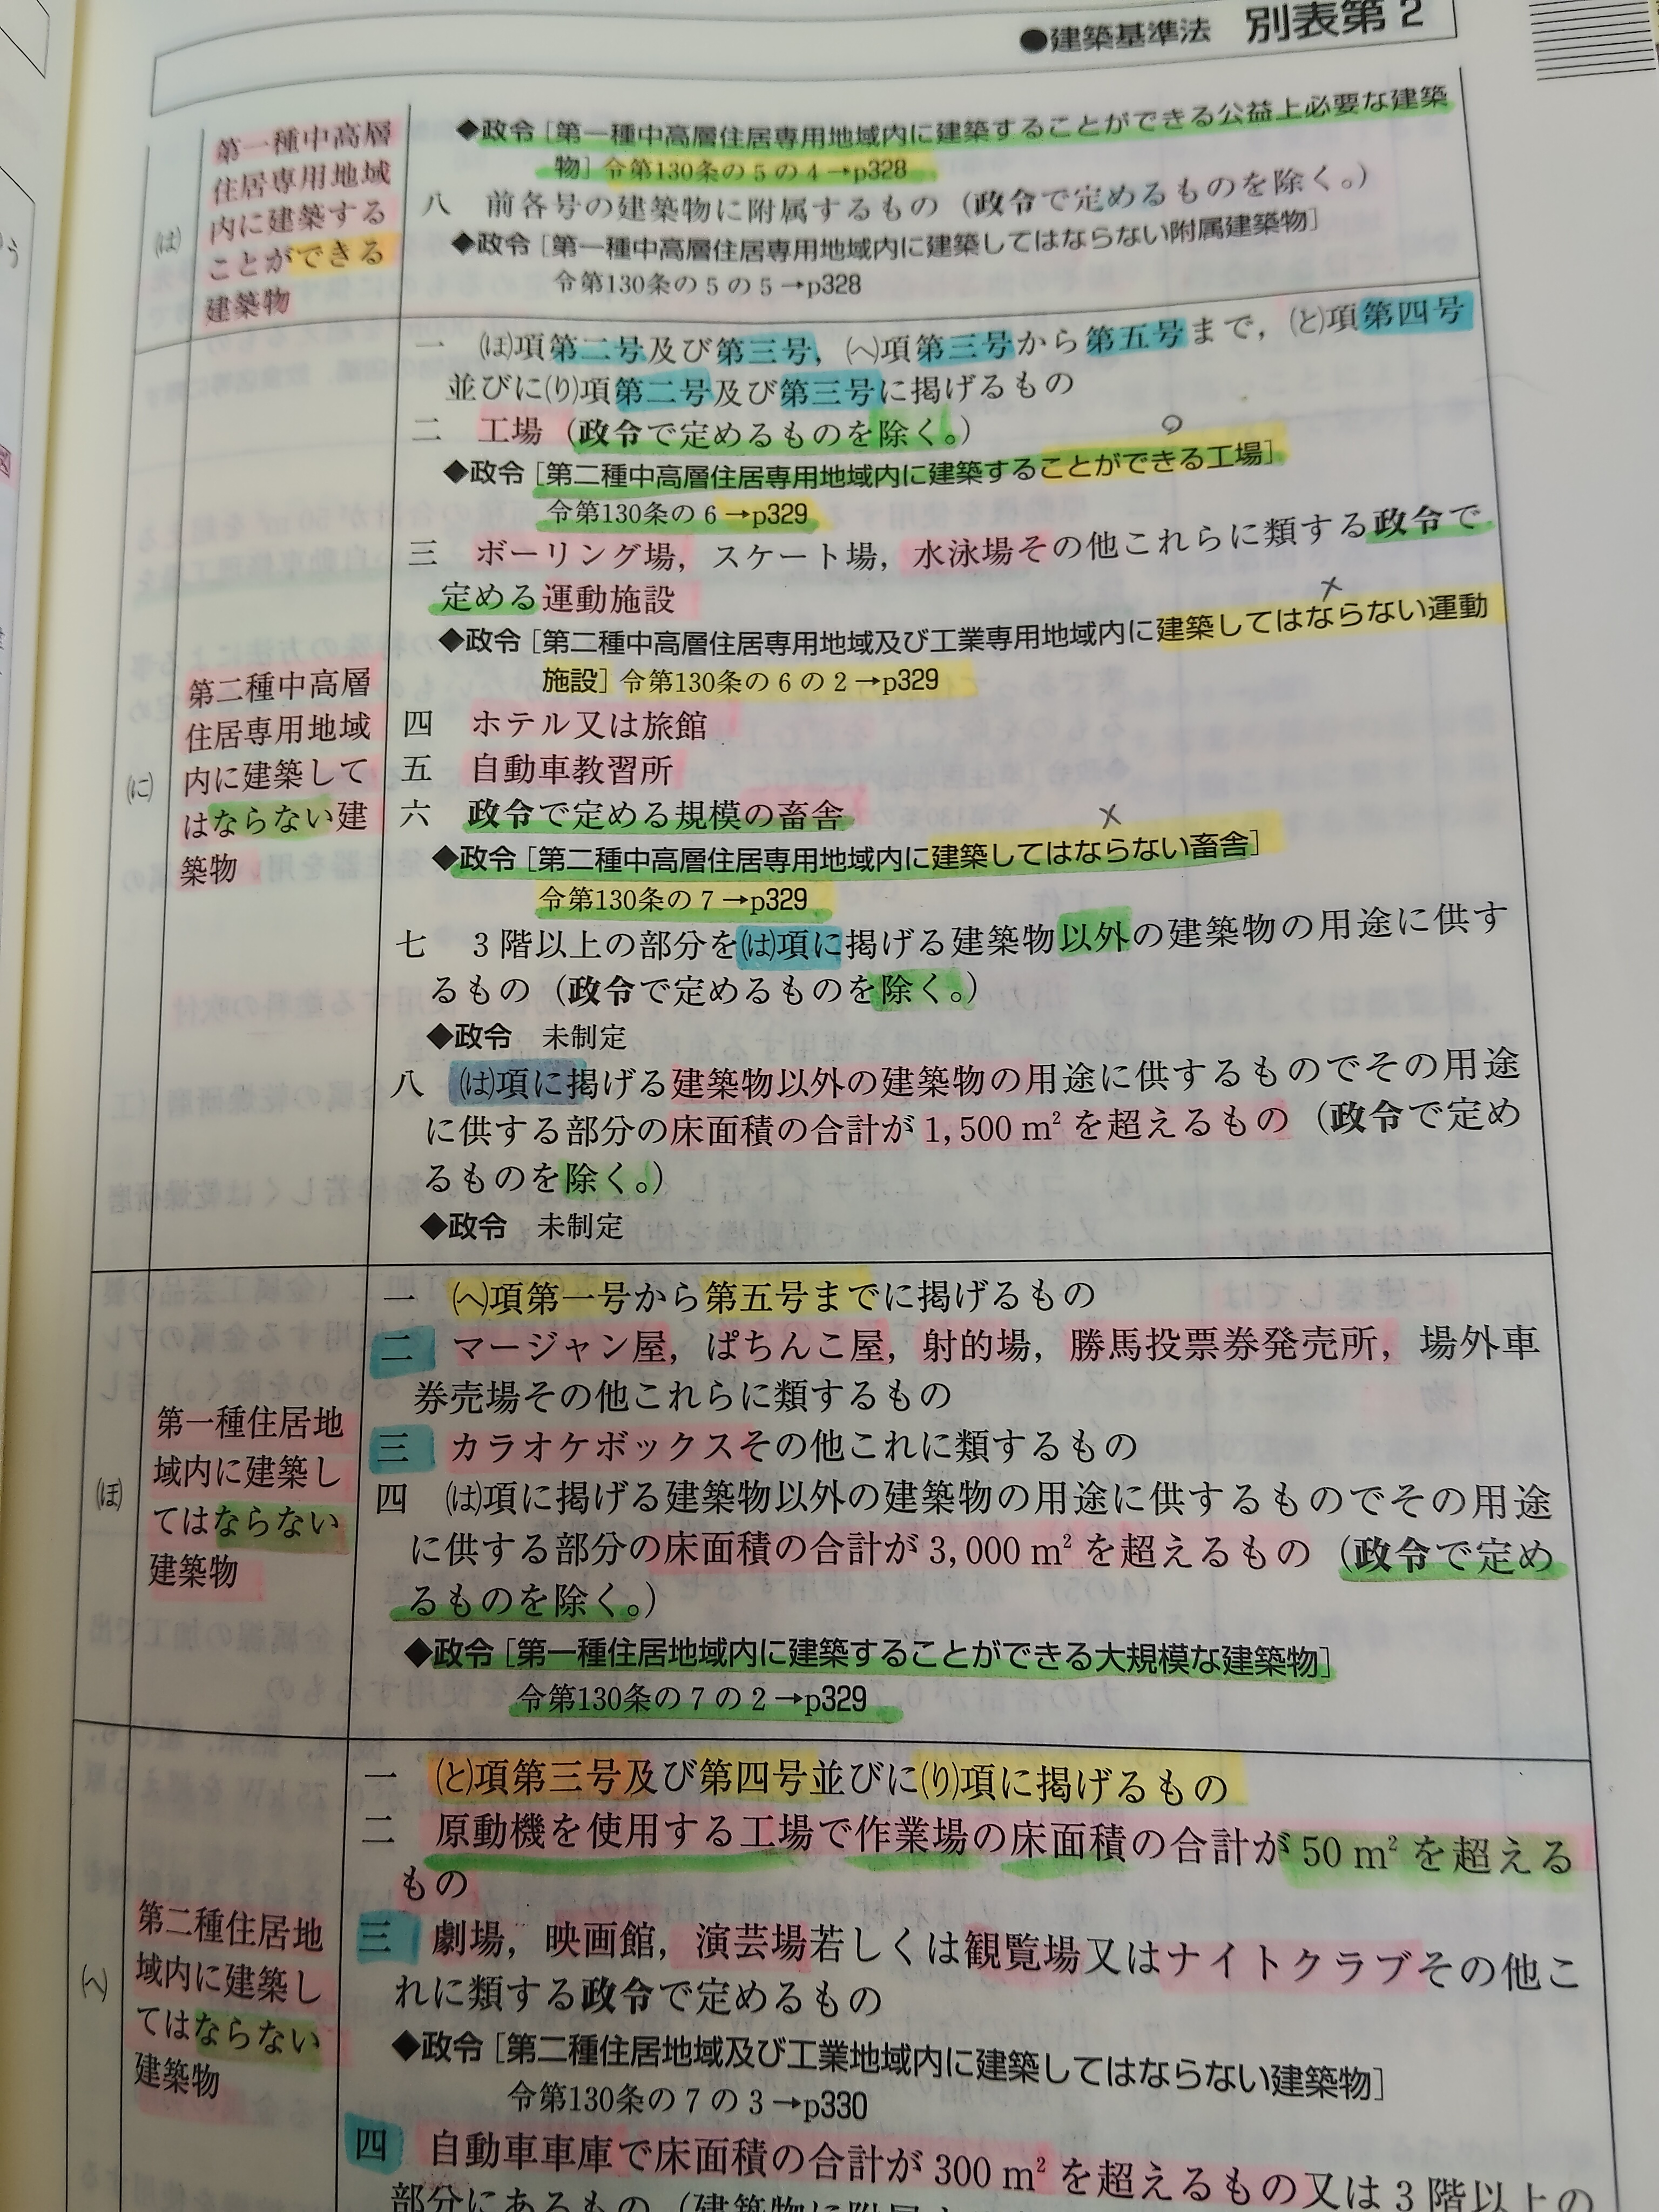 ●建築基準法 別表第2
(は)
第一種中高層
住居専用地域
内に建築する
ことができる
建築物
◆政令［第一種中高層住居専用地域内に建築することができる公益上必要な建築
物］令第130条の5の4→p328
八 前各号の建築物に附属するもの（政令で定めるものを除く。）
◆政令［第一種中高層住居専用地域内に建築してはならない附属建築物］
令第130条の5の5→p328
(に)
第二種中高層
住居専用地域
内に建築して
はならない建
築物
一 (ほ)項第二号及び第三号，(へ)項第三号から第五号まで，(と)項第四号
並びに(り)項第二号及び第三号に掲げるもの
二 工場（政令で定めるものを除く。）
◆政令［第二種中高層住居専用地域内に建築することができる工場］
令第130条の6→p329
三 ボーリング場，スケート場，水泳場その他これらに類する政令で
定める運動施設
◆政令［第二種中高層住居専用地域及び工業専用地域内に建築してはならない運動
施設］令第130条の6の2→p329
四 ホテル又は旅館
五 自動車教習所
六 政令で定める規模の畜舎
◆政令［第二種中高層住居専用地域内に建築してはならない畜舎］
令第130条の7→p329
七 3階以上の部分を(は)項に掲げる建築物以外の建築物の用途に供す
るもの（政令で定めるものを除く。）
◆政令 未制定
八 (は)項に掲げる建築物以外の建築物の用途に供するものでその用途
に供する部分の床面積の合計が1,500m²を超えるもの（政令で定め
るものを除く。）
◆政令 未制定
(ほ)
第一種住居地
域内に建築し
てはならない
建築物
一 (へ)項第一号から第五号までに掲げるもの
二 マージャン屋，ぱちんこ屋，射的場，勝馬投票券発売所，場外車
券売場その他これらに類するもの
三 カラオケボックスその他これに類するもの
四 (は)項に掲げる建築物以外の建築物の用途に供するものでその用途
に供する部分の床面積の合計が3,000m²を超えるもの（政令で定め
るものを除く。）
◆政令［第一種住居地域内に建築することができる大規模な建築物］
令第130条の7の2→p329
(へ)
第二種住居地
域内に建築し
てはならない
建築物
一 (と)項第三号及び第四号並びに(り)項に掲げるもの
二 原動機を使用する工場で作業場の床面積の合計が50m²を超える
もの
三 劇場，映画館，演芸場若しくは観覧場又はナイトクラブその他こ
れに類する政令で定めるもの
◆政令［第二種住居地域及び工業地域内に建築してはならない建築物］
令第130条の7の3→p330
四 自動車車庫で床面積の合計が300m²を超えるもの又は3階以上の
部分にあるもの（建築物に附属